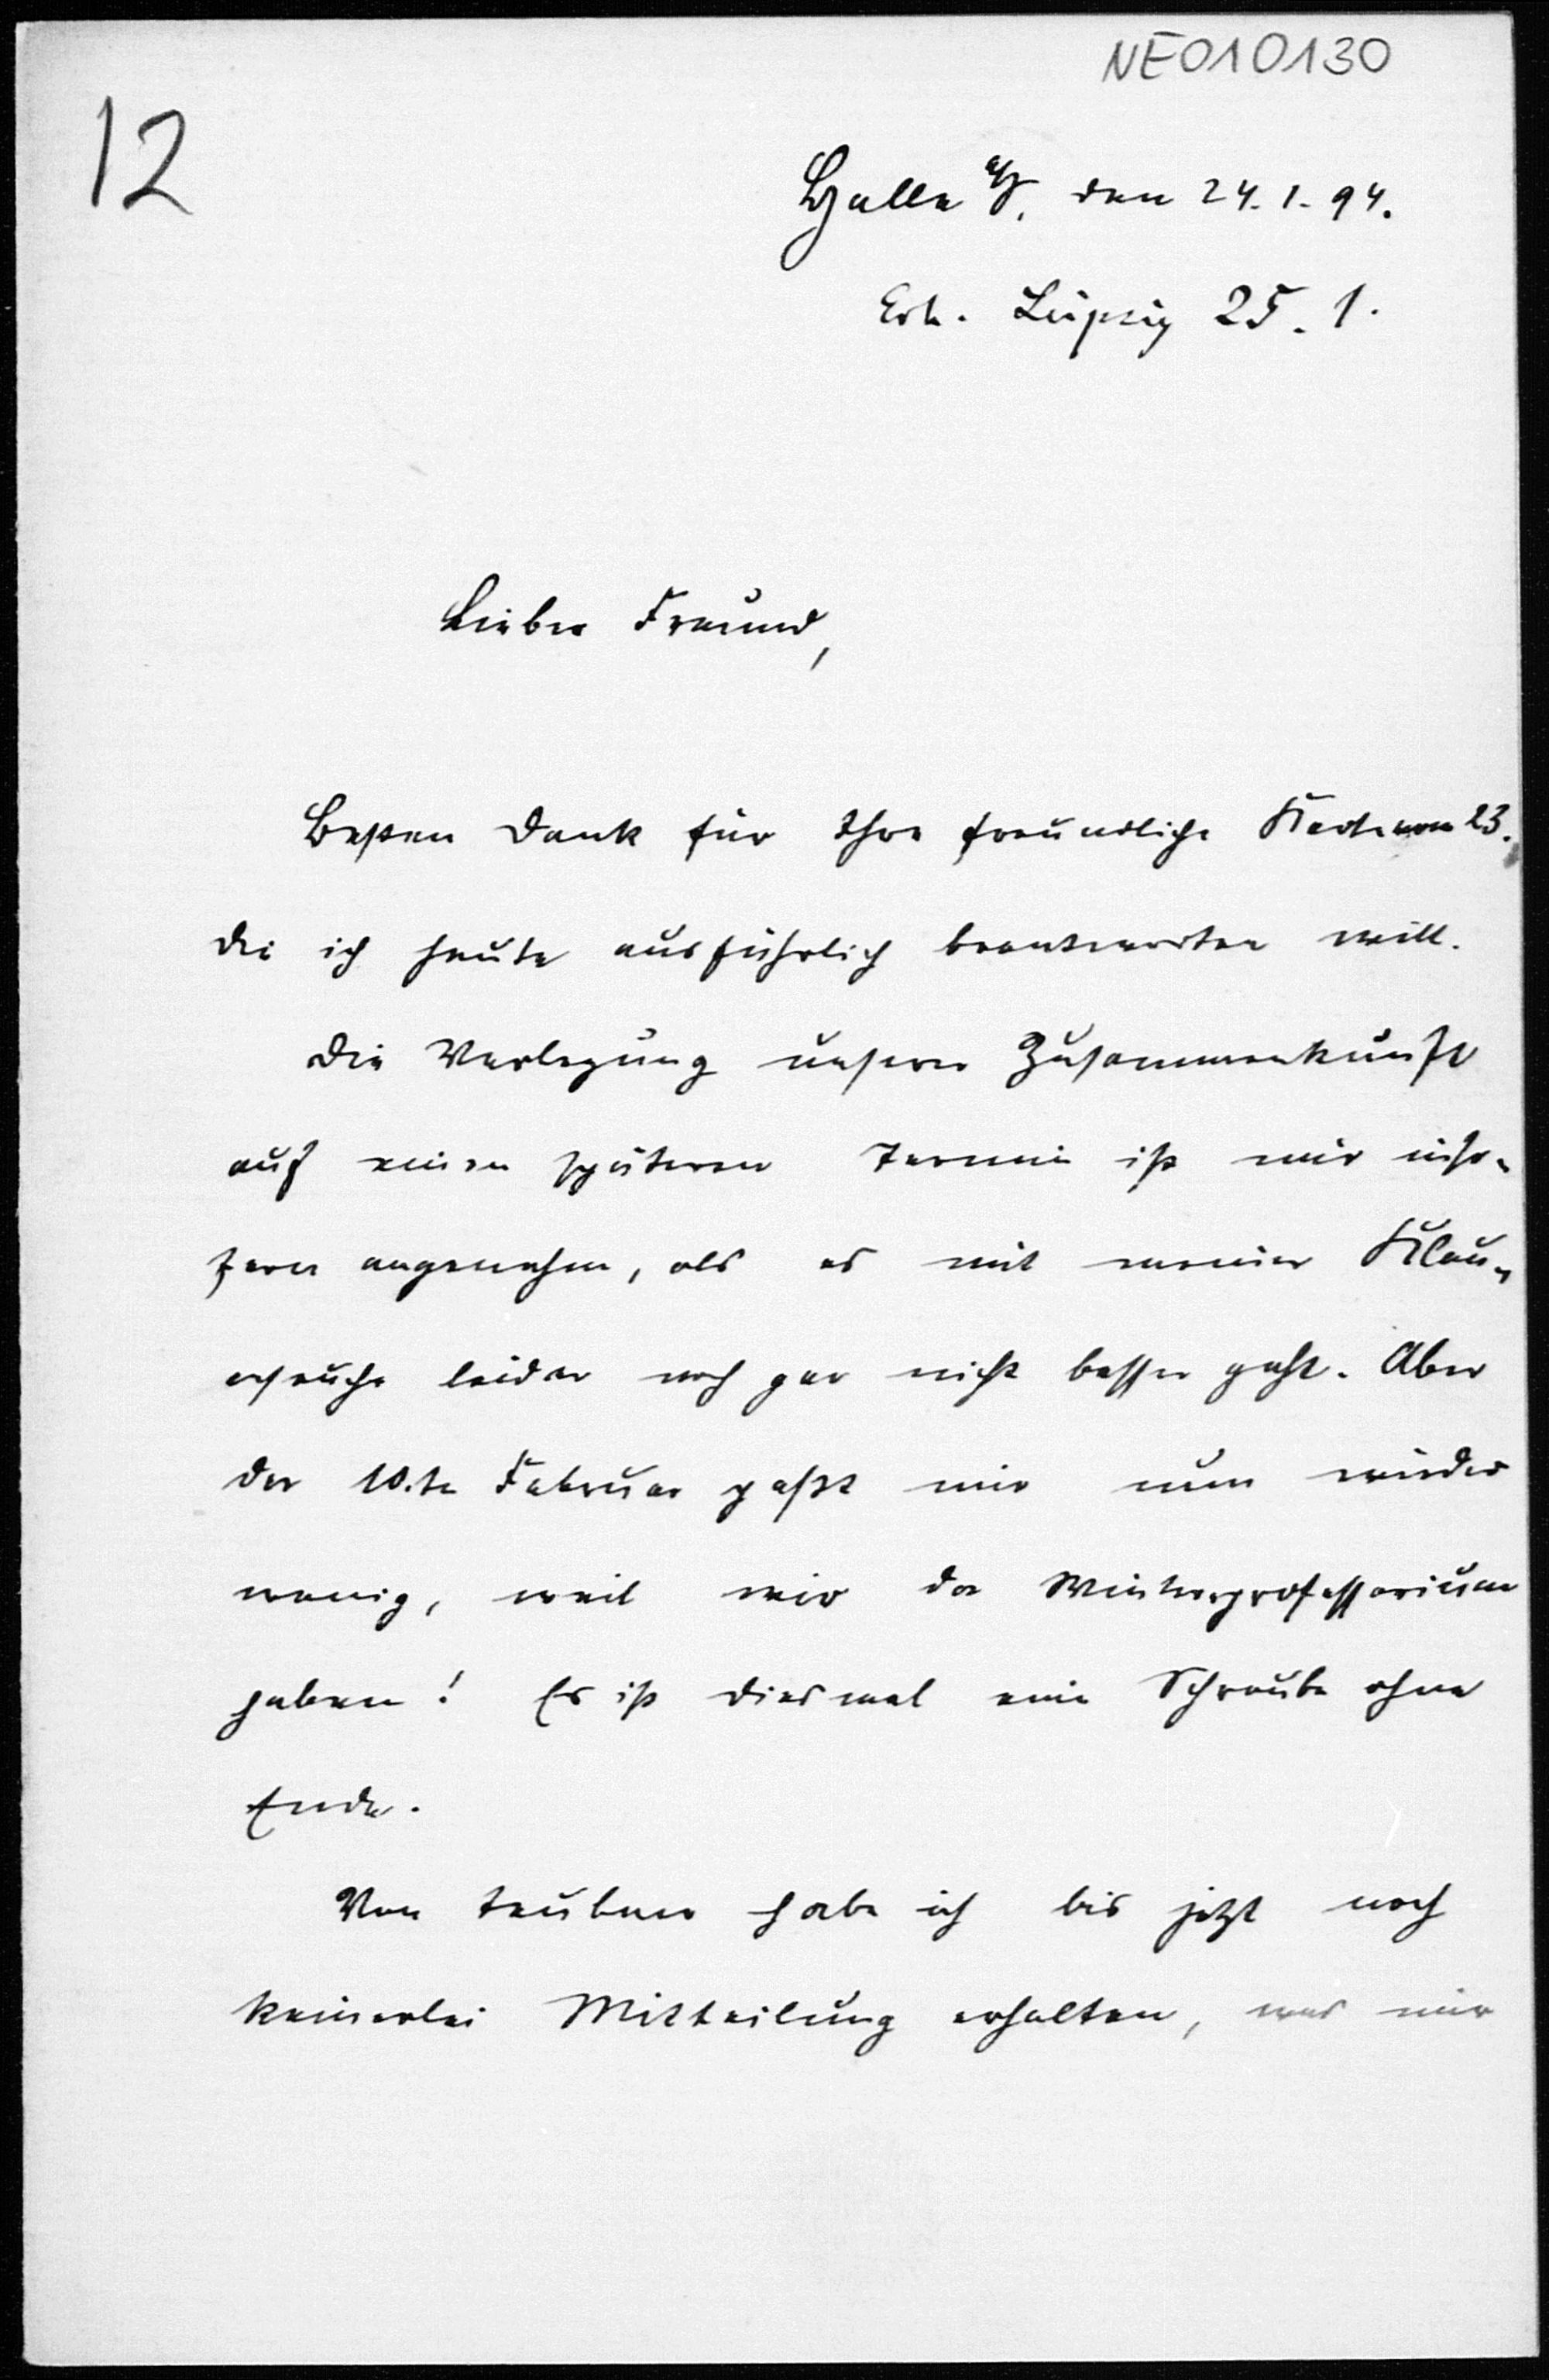 NE010130
12
Halle a/S, den 24. 1. 94.
Erh. Leipzig 25. 1.
Lieber Freund,
Besten Dank für Ihre freundliche Karte vom 23.
die ich heute ausführlich beantworten will.
Die Verlegung unserer Zusammenkunft
auf einen späteren Termin ist mir inso-
fern angenehm, als es mit meiner
leider noch gar nicht besser geht. Aber
der 10.te Februar paßt mir nun wieder
wenig, weil wir da Winterprofessorium
haben! Es ist diesmal eine Schraube ohne
Ende.
Von Teubner habe ich bis jetzt noch
keinerlei Mitteilung erhalten, was mir